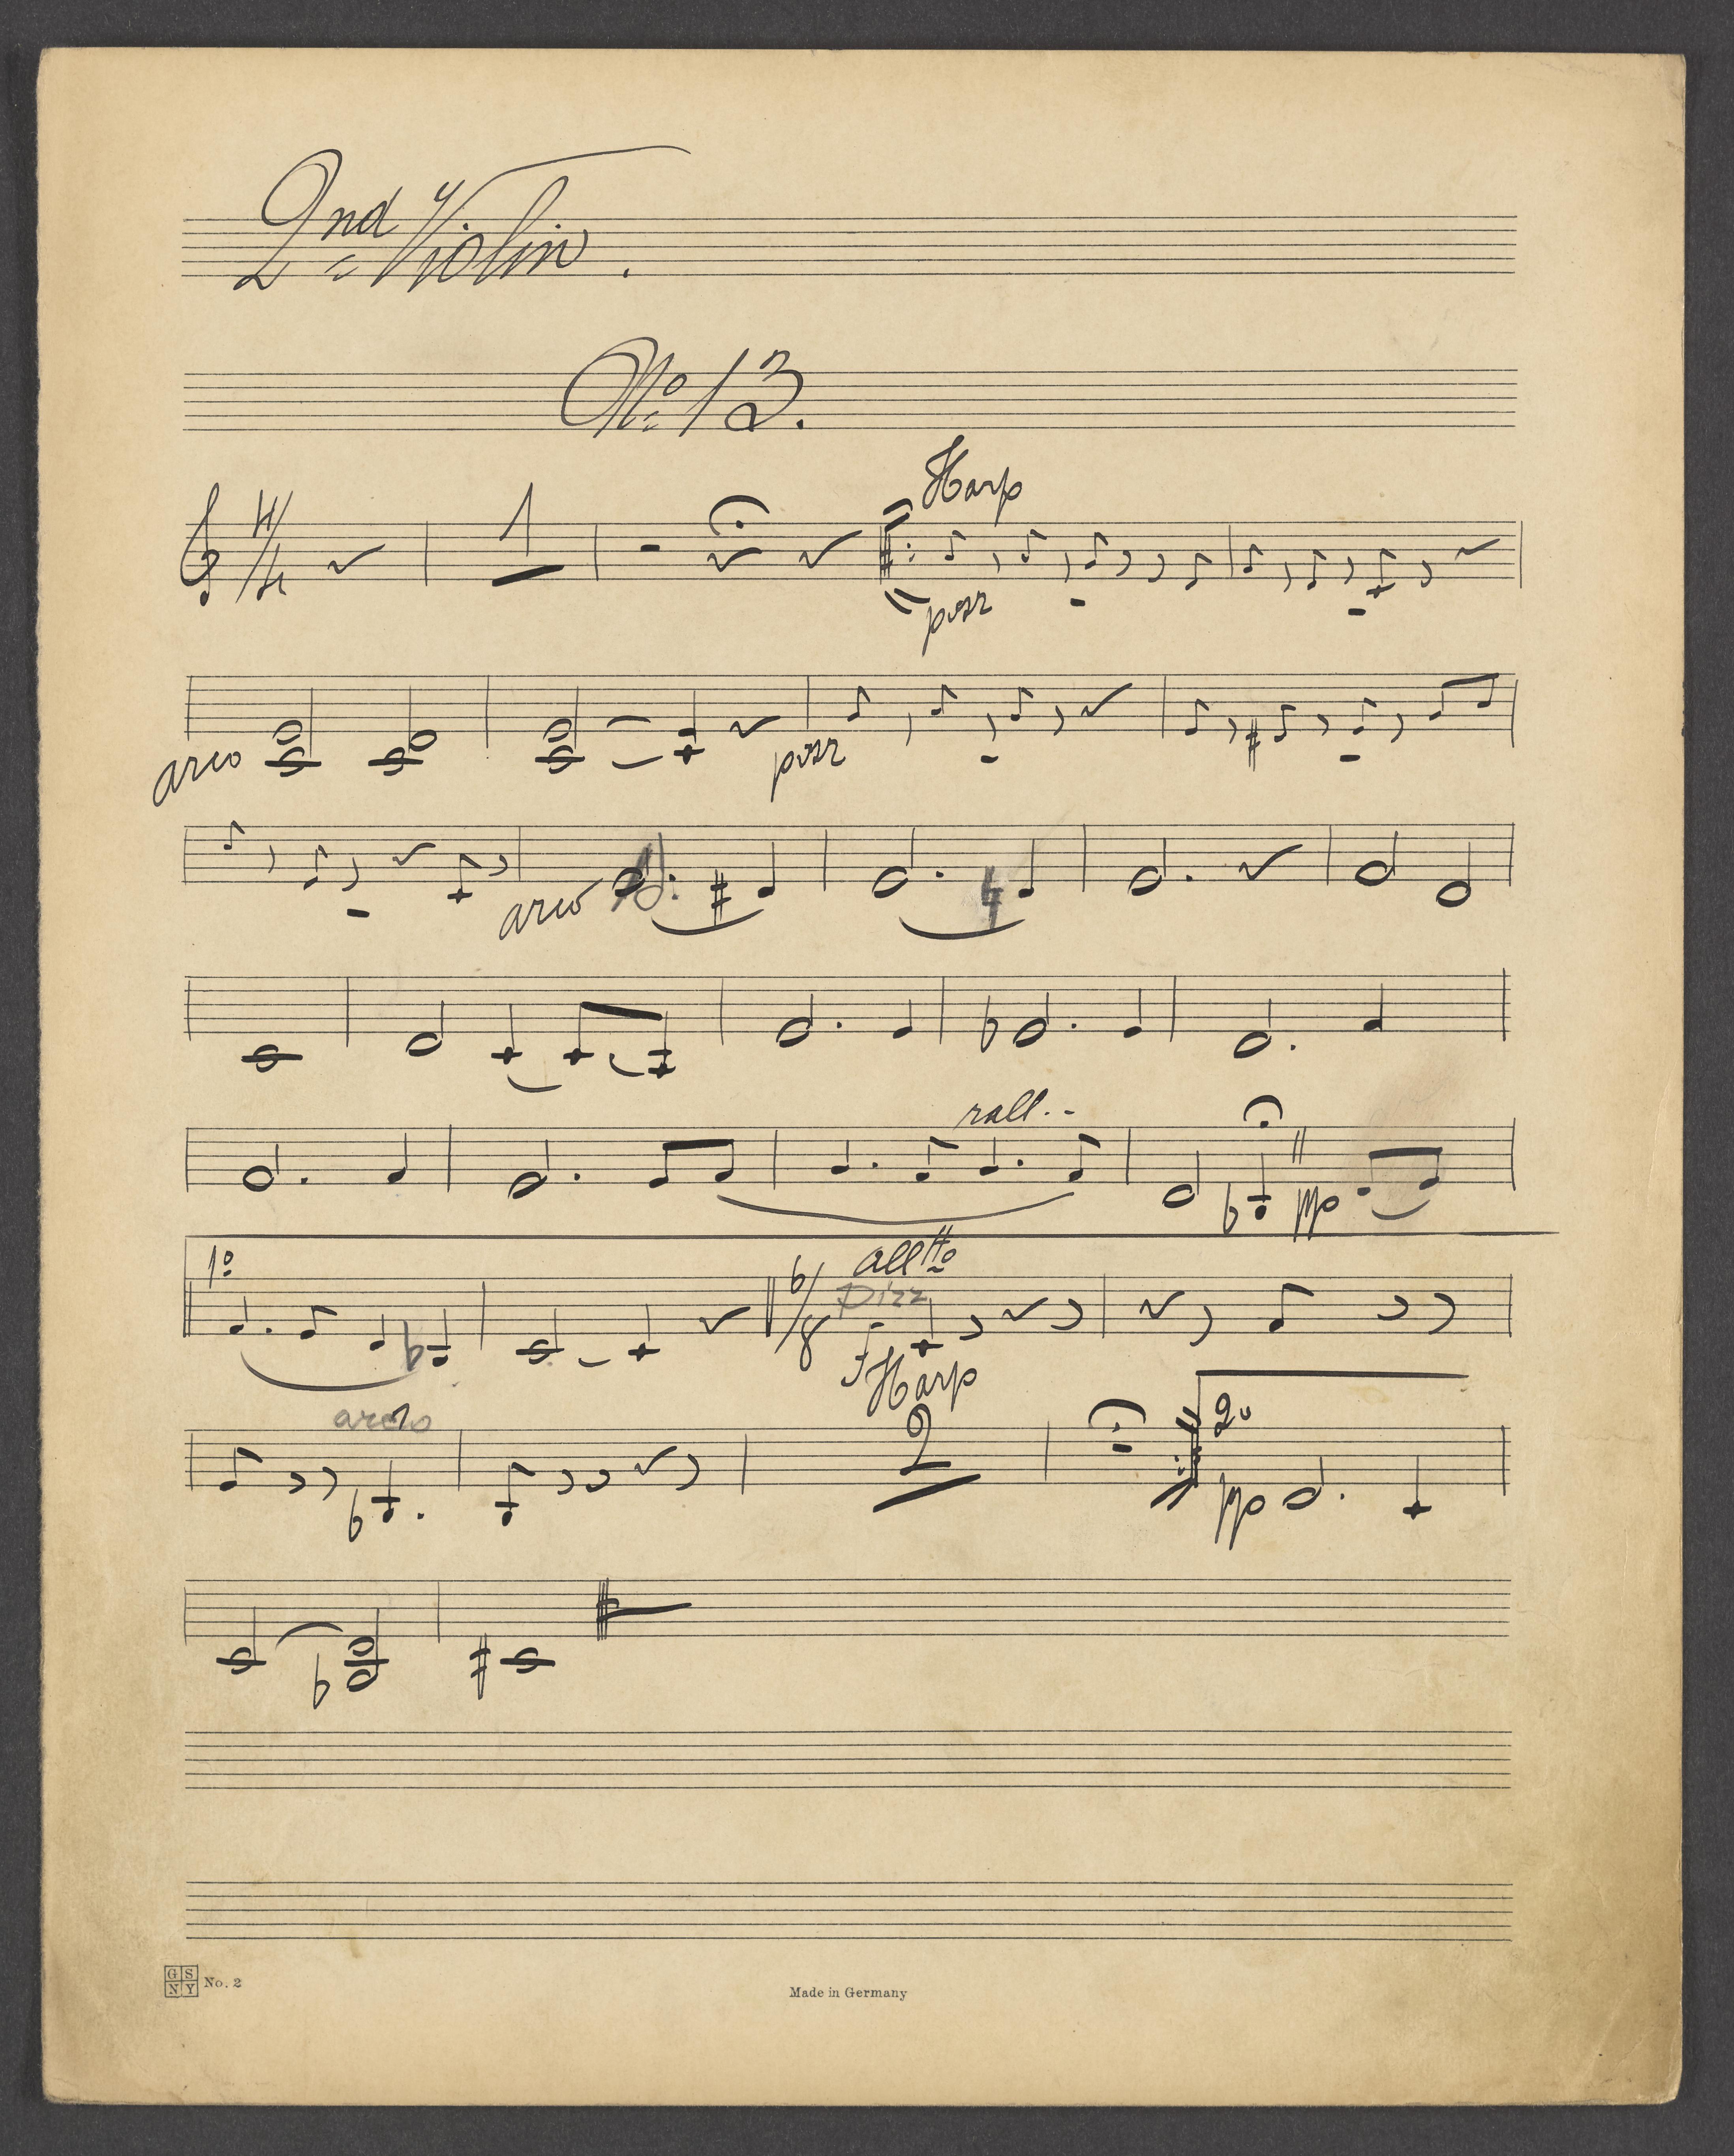 2nd Violin.
No 13.
4/4
1
Harp
pizz
arco
pizz
arco
rall..
pp
1o
6/8
alltto
pizz
f
Harp
arco
2
2o
pp
GSNY No. 2
Made in Germany